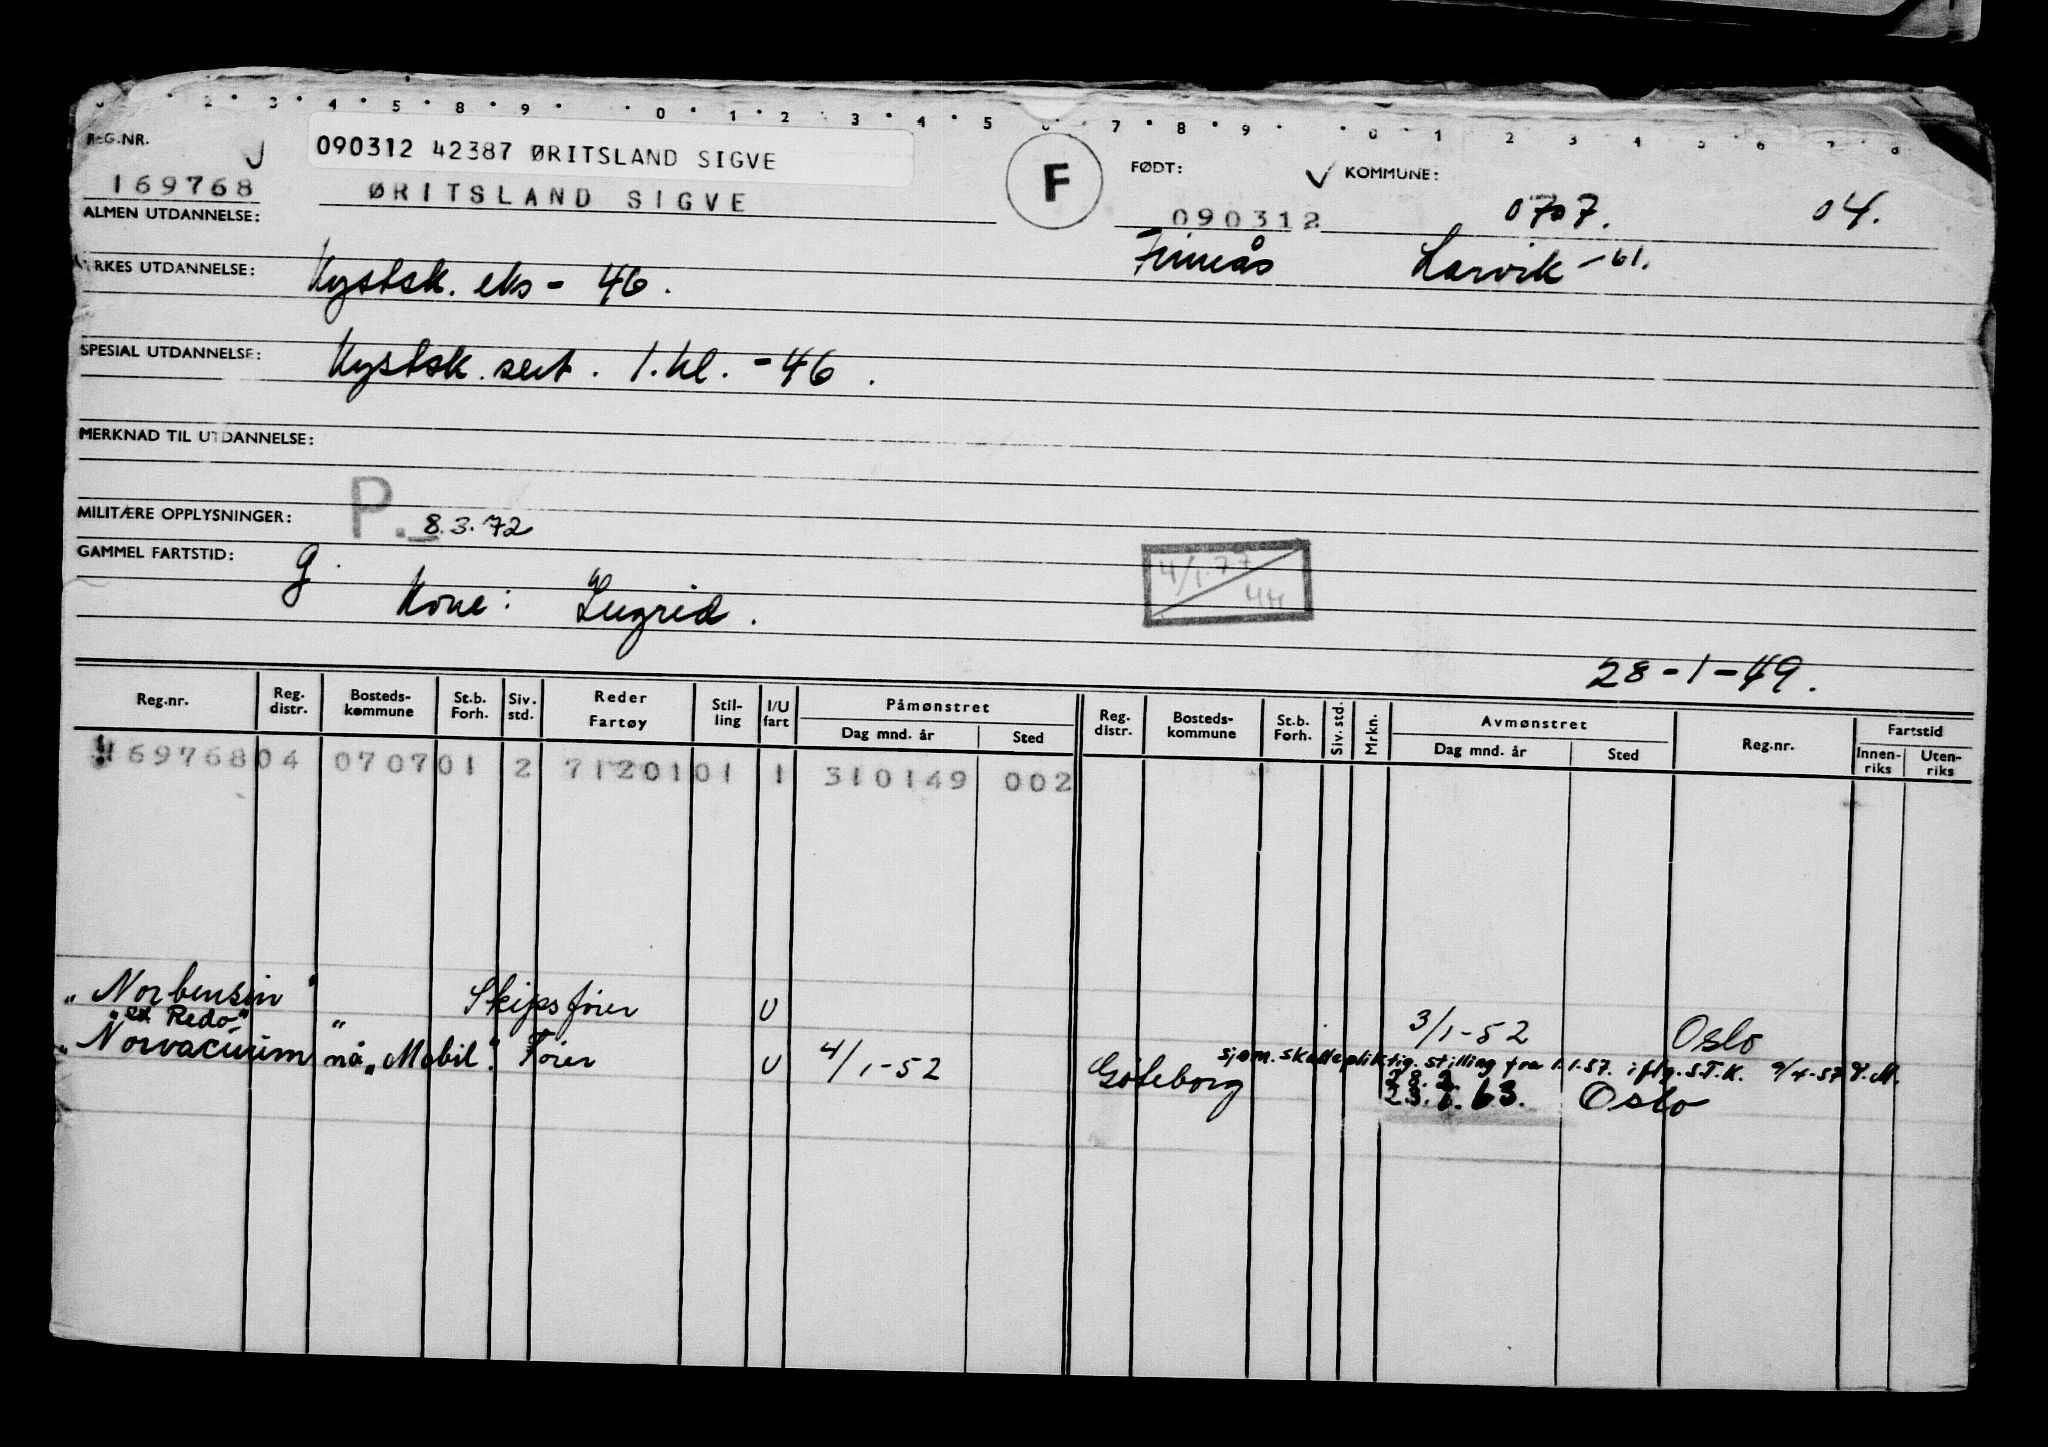 2 3 4 5 8 9 0 1 2 3 4 5 7 8 9 0 1 2 3 4 5
REG.NR.
169768
090312 42387 ØRITSLAND SIGVE
ØRITSLAND SIGVE
F
FØDT:
090312
Finnås
KOMMUNE:
0707. 04.
Larvik -61.
ALMEN UTDANNELSE:
YRKES UTDANNELSE: Kystsk. eks - 46.
SPESIAL UTDANNELSE: Kystsk. sert. 1. kl. -46.
MERKNAD TIL UTDANNELSE:
MILITÆRE OPPLYSNINGER: P. 8.3.72
GAMMEL FARTSTID: g.
Kone: Ingrid.
4/1.77
28-1-49.
Reg.nr. Reg. distr. Bosteds-kommune St.b. Forh. Siv. std. Reder Fartøy Stil-ling I/U fart Påmønstret Dag mnd. år Sted Reg. distr. Bosteds-kommune St.b. Forh. Siv. std. Mrkn. Avmønstret Dag mnd. år Sted Reg.nr. Fartstid Innen-riks Uten-riks
16976804 070701 2 7120101 1 310149 002
"Norbensin" Skipsfører U 3/1-52 Oslo
"ex Redo"
"Norvacuum" nå "Mobil". Fører U 4/1-52 Göteborg
sjøm. skattepliktig. stilling fra 1.1.57. iflg. S.T.K. 9/4-57 V.M.
63. Oslo